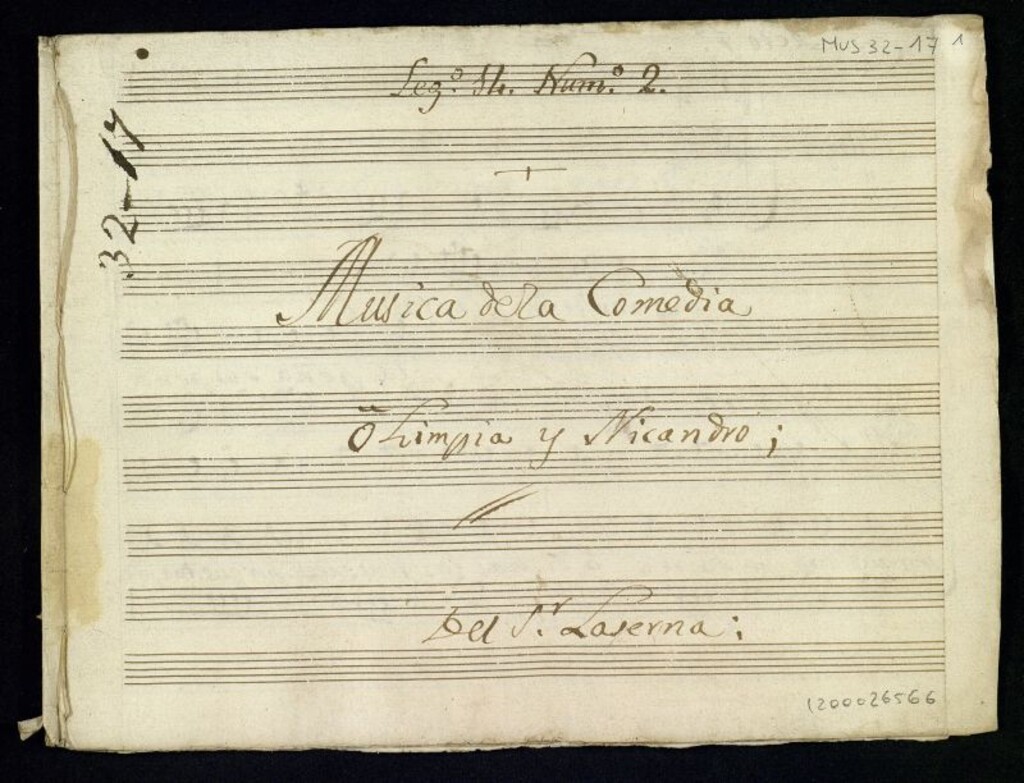 MUS 32-17 1
Leg.º 14. Num.º 2.
32-17
Musica de la Comedia
Olimpia y Nicandro;
Del S.r Laserna;
1200026566